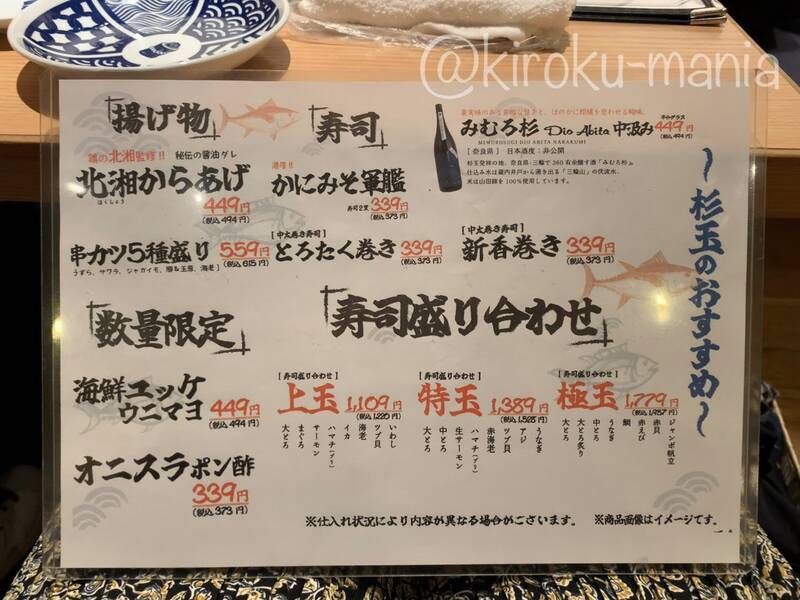 @kiroku-mania
～杉玉のおすすめ～
「揚げ物」
種の北湘監修!! 秘伝の醤油ダレ
北湘からあげ
ほくしょう
449円
(税込 494 円)
串カツ5種盛り 559円
(税込 615 円)
「寿司」
濃厚!!
かにみそ軍艦
寿司2貫 339円
(税込 373 円)
[中太巻き寿司]
とろたく巻き 339円
(税込 373 円)
みむろ杉 Dio Abita 中汲み 449円
(税込 494 円)
MIMUROSUGI DIO ABITA NAKAKUMI
[奈良県] 日本酒度：非公開
杉玉発祥の地、奈良県・三輪で360有余醸す酒「みむろ杉」。
仕込み水は蔵内井戸から湧き出る「三輪山」の伏流水、
米は山田錦を100%使用しています。
[中太巻き寿司]
新香巻き 339円
(税込 373 円)
「数量限定」
海鮮ユッケ
ウニマヨ 449円
(税込 494 円)
オニスラポン酢
339円
(税込 373 円)
「寿司盛り合わせ」
[寿司盛り合わせ]
上玉 1,109円
(税込 1,220 円)
いわし
ツブ貝
海老
イカ
ハマチ(ブリ)
サーモン
まぐろ
大とろ
[寿司盛り合わせ]
特玉 1,389円
(税込 1,528 円)
うなぎ
アジ
ツブ貝
赤海老
ハマチ(ブリ)
生サーモン
中とろ
大とろ
[寿司盛り合わせ]
極玉 1,779円
(税込 1,957 円)
ジャンボ帆立
赤貝
赤えび
鯛
うなぎ
中とろ
大とろ炙り
大とろ
※仕入れ状況により内容が異なる場合がございます。 ※商品画像はイメージです。